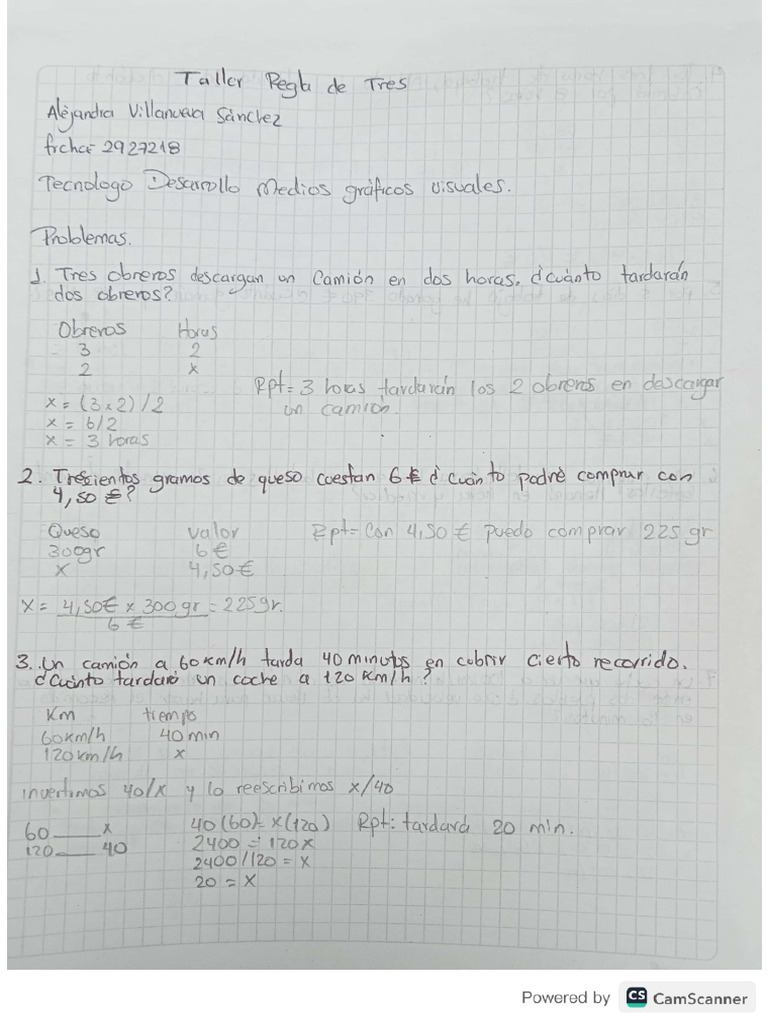 Taller Regla de Tres
Alejandra Villanueva Sánchez
ficha= 2927218
Tecnologo Desarrollo Medios gráficos visuales.
Problemas.
1. Tres obreros descargan un Camión en dos horas. ¿cuánto tardarán
dos obreros?
Obreros Horas
3 2
2 x
x = (3x2)/2
x = 6/2
x = 3 horas
Rpt= 3 horas tardarán los 2 obreros en descargar
un camión.
2. Trescientos gramos de queso cuestan 6€ ¿cuánto podré comprar con
4,50 €?
Queso valor
300gr 6€
x 4,50€
Rpt= Con 4,50 € puedo comprar 225 gr
x = 4,50€ x 300 gr = 225gr.
6 €
3. Un camión a 60km/h tarda 40 minutos en cubrir cierto recorrido.
¿Cuánto tardará un coche a 120 Km/h?
Km tiempo
60km/h 40 min
120km/h x
invertimos 40/x y lo reescribimos x/40
60 x
120 40
40(60)= x(120)
2400 = 120x
2400/120 = x
20 = x
Rpt: tardará 20 min.
Powered by CS CamScanner